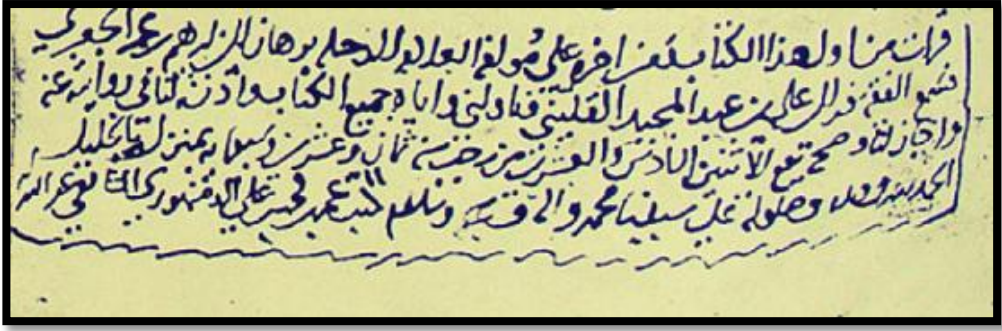 قرات من اول هذا الكتاب على مولفه برهان الدين ابرهيم بن عمر الجعبري
فسمع الفقيه علي بن عبد المجيد القليني فناولني واياه جميع الكتاب واذن لنا في روايته عنه
واجاز لنا وصح يوم الاثنين السادس والعشرين من رجب سنة ثمان وعشرين وسبعمايه بمنزله بالخليل
الحمد لله وحده وصلواته على سيدنا محمد واله وسلم كتبه محمد علي الدمنهوري الشافعي